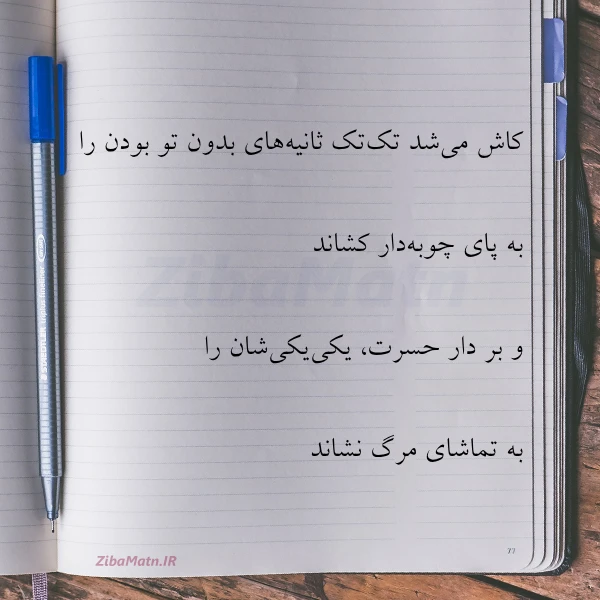 کاش می‌شد تک‌تک ثانیه‌های بدون تو بودن را
به پای چوبه‌دار کشاند
و بر دار حسرت، یکی‌یکی‌شان را
به تماشای مرگ نشاند
ZibaMatn
ZibaMatn.IR